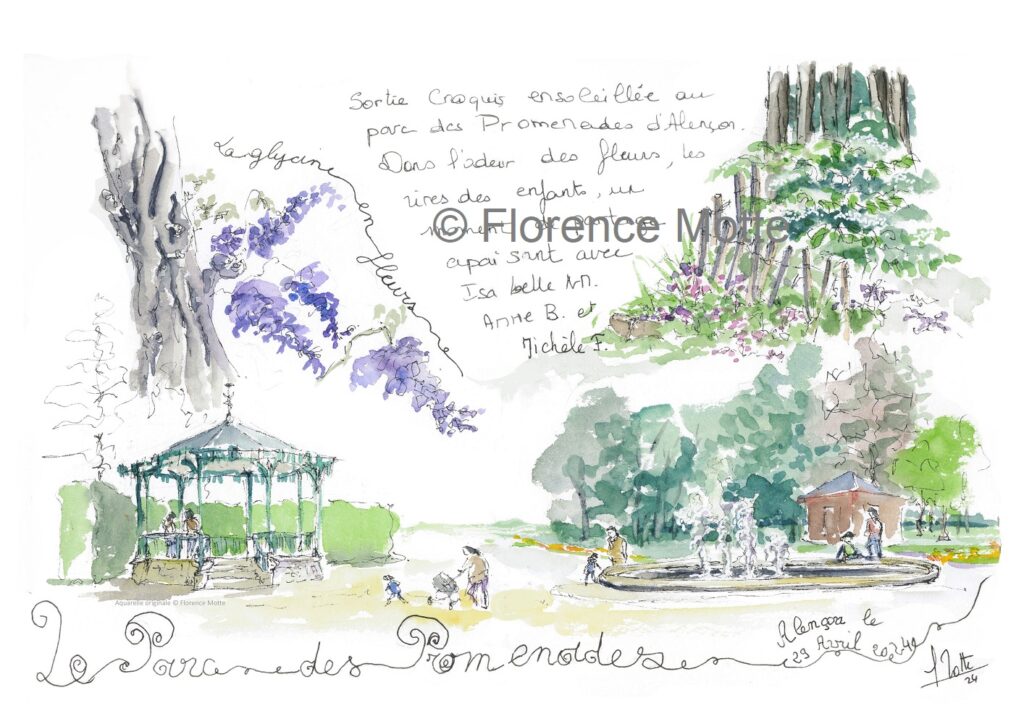 Sortie Croquis ensoleillée au
parc des Promenades d'Alençon.
Dans l'odeur des fleurs, les
rires des enfants, un
moment de partage
apaisant avec
Isabelle M.
Anne B. et
Michèle F.
La glycine en fleurs
© Florence Motte
Aquarelle originale © Florence Motte
Le Parc des Promenades
Alençon le
29 Avril 2024
F Motte
24